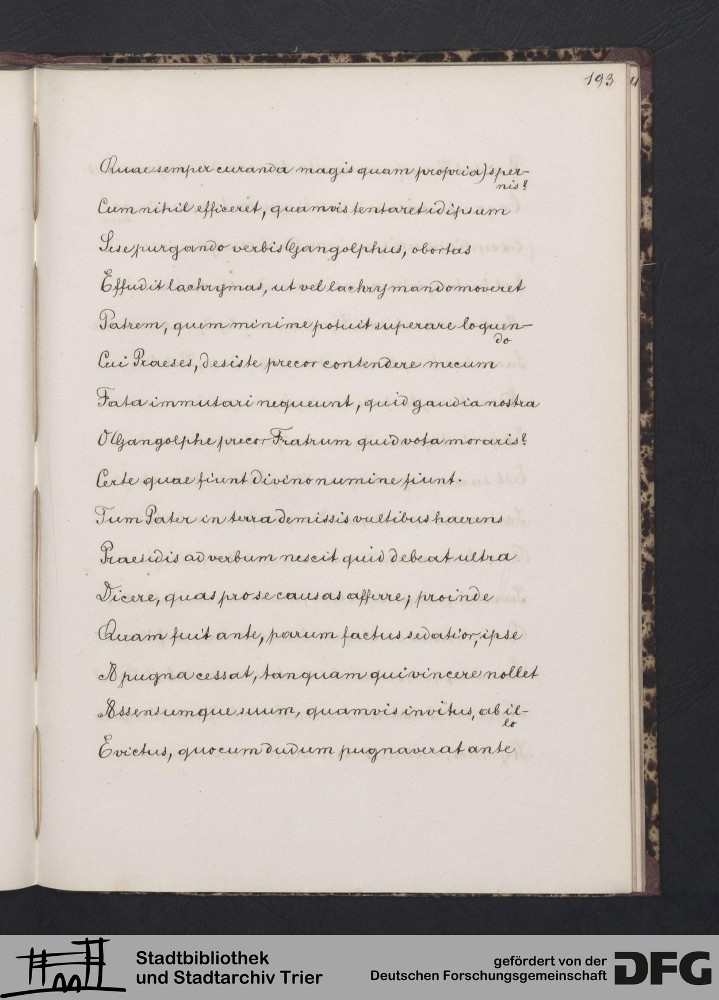 193
Quae semper curanda magis quam propria) sper-
nis?
Cum nihil efficeret, quamvis tentaret id ipsum
Sese purgando verbis Gangolphus, obortas
Effudit lachrymas, ut vel lachrymando moveret
Patrem, quem minime potuit superare loquen-
do
Cui Praeses, desiste precor contendere mecum
Fata immutari nequeunt, quid gaudia nostra
O Gangolphe precor Fratrum quid vota moraris?
Certe quae fiunt divino numine fiunt.
Tum Pater in terra demissis vultibus haerens
Praesidis ad verbum nescit quid debeat ultra
Dicere, quas pro se causas afferre; proinde
Quam fuit ante, parum factus sedatior, ipse
A pugna cessat, tanquam qui vincere nollet
Assensumque suum, quamvis invitus, ab il-
lo
Evictus, quocum dudum pugnaverat ante
Stadtbibliothek
und Stadtarchiv Trier
gefördert von der
Deutschen Forschungsgemeinschaft
DFG